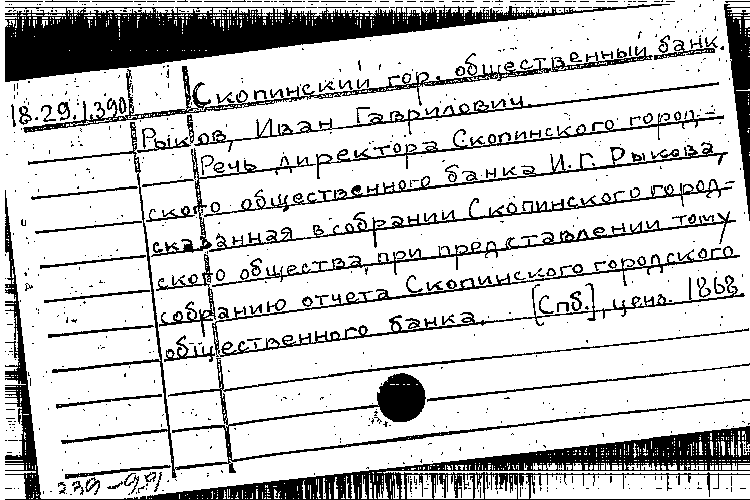 Скопинский гор. общественный банк.
18.29.1.390
Рыков, Иван Гаврилович.
Речь директора Скопинского город-
ского общественного банка И.Г. Рыкова,
сказанная в собрании Скопинского город-
ского общества, при представлении тому
собранию отчета Скопинского городского
общественного банка. [Спб.], ценз. 1868.